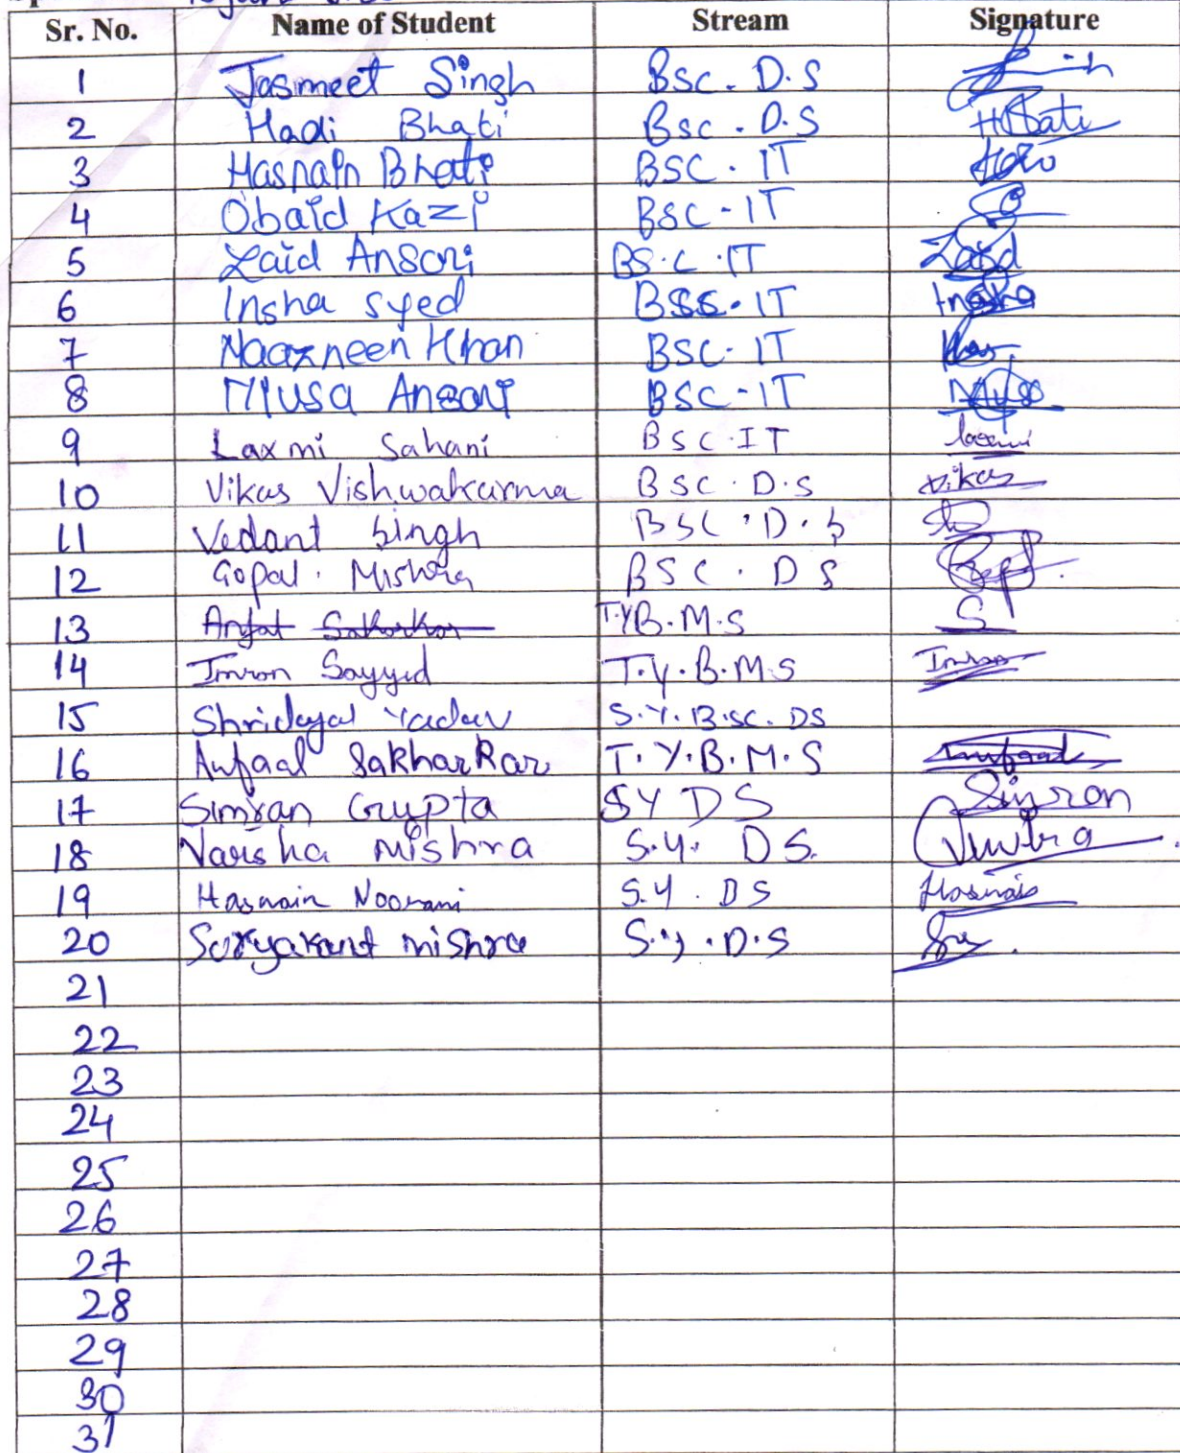 Sr. No. Name of Student Stream Signature
1 Jasmeet Singh BSC. D.S
2 Hadi Bhati BSC. D.S HBati
3 Hasnain Bhati BSC. IT
4 Obaid Kazi BSC-IT
5 Zaid Ansari BS.C.IT Zaid
6 Insha Syed BSC.IT Insha
7 Naazneen Khan BSC-IT
8 Musa Ansari BSC-IT Musa
9 Laxmi Sahani BSC.IT laxmi
10 Vikas Vishwakarma BSC.D.S Vikas
11 Vedant Singh BSC.D.S
12 Gopal. Mishra BSC. DS
13 Arfat Sakharkar T.YB.M.S S
14 Imran Sayyed T.Y.B.M.S Imran
15 Shridayal Yadav S.Y.B.SC.DS
16 Anfaal Sakharkar T.Y.B.M.S Anfaal
17 Simran Gupta SY DS Simran
18 Varsha Mishra S.Y. DS.
19 Hasnain Noorani S.Y. DS Hasnain
20 Suryakant mishra S.Y.D.S
21
22
23
24
25
26
27
28
29
30
31